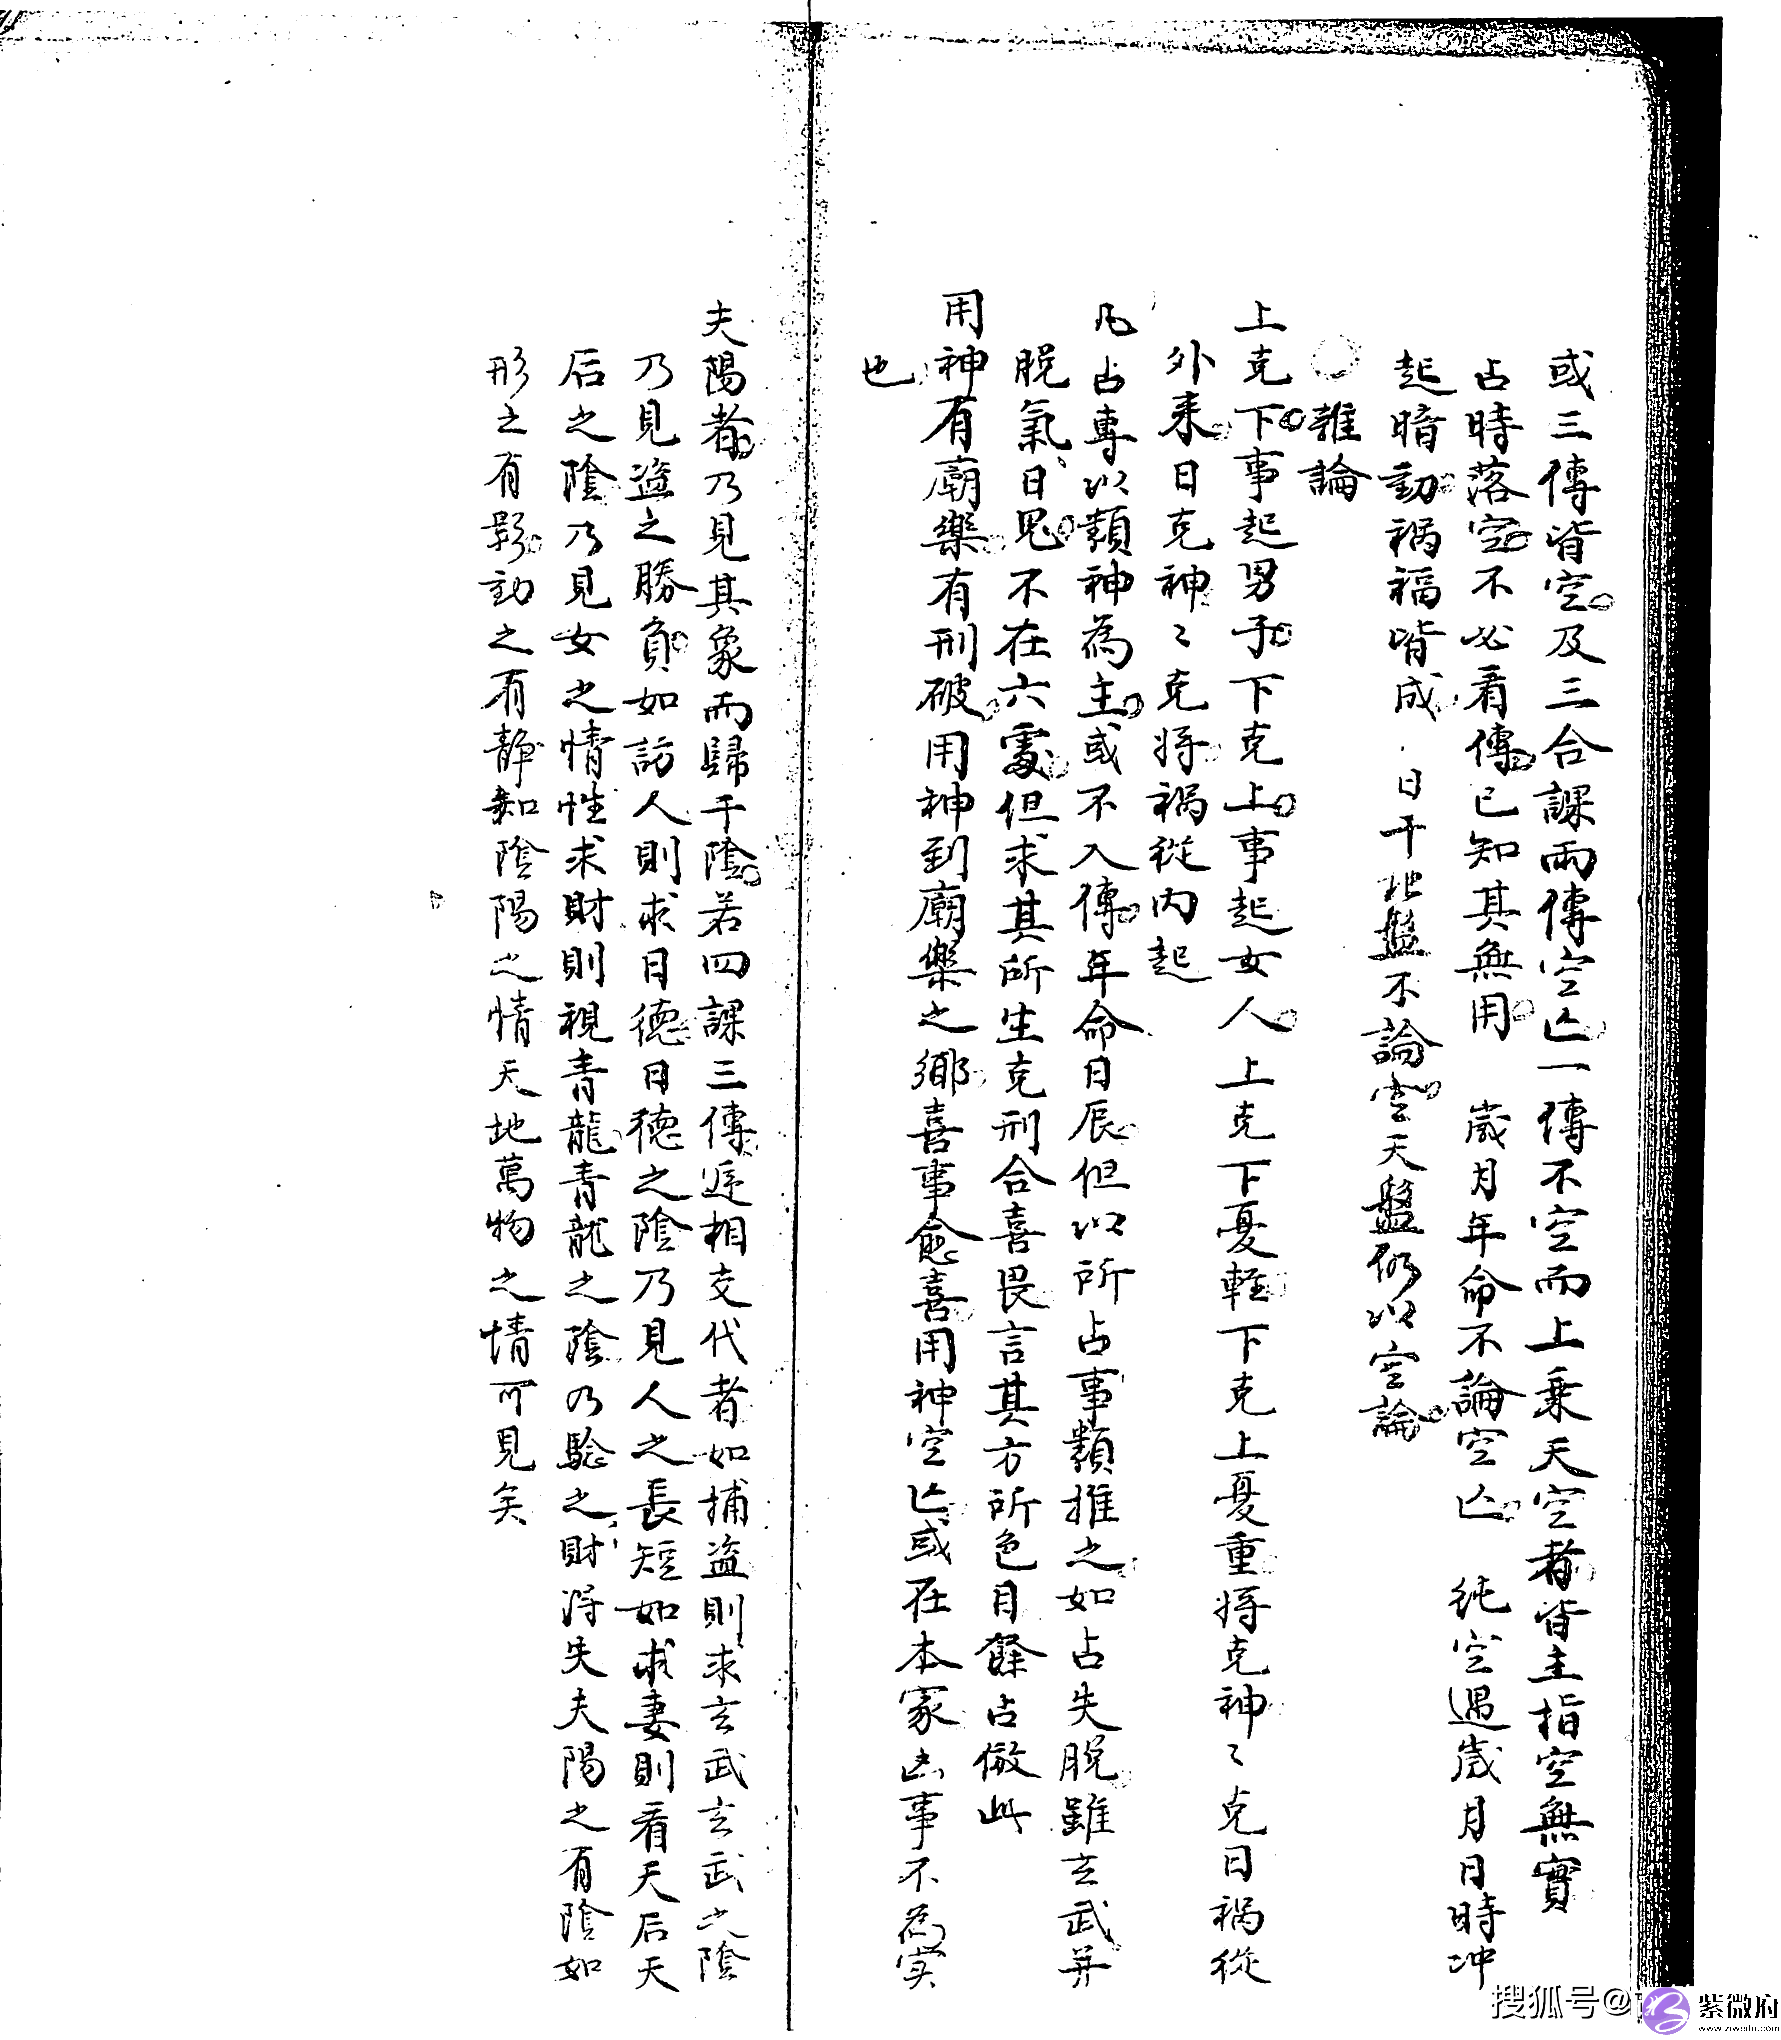 或三傳皆空及三合課兩傳空亡一傳不空而上乗天空者皆主指空無實
占時落空不必看傳已知其無用　歲月年命不論空亡　純空遇歲月日時冲
起暗動禍福皆成　日干地盤不論空天盤仍以空論
雜論
上克下事起男子下克上事起女人上克下憂輕下克上憂重將克神〻克日禍從
外来日克神〻克將禍從内起
凡占專以類神為主或不入傳年命日辰但以所占事類推之如占失脫雖玄武并
脫氣日鬼不在六處但求其所生克刑合喜畏言其方所色目餘占倣此
用神有廟樂有刑破用神到廟樂之鄉喜事愈喜用神空亡或在本家凶事不為实
也
夫陽者乃見其象而歸于陰若四課三傳逓相交代者如捕盜則求玄武玄武之陰
乃見盜之勝負如訪人則求日德日德之陰乃見人之長短如求妻則看天后天
后之陰乃見女之情性求財則視青龍青龍之陰乃驗之財得失夫陽之有陰如
形之有影動之有静知陰陽之情天地萬物之情可見矣
搜狐号@
紫微府
www.ziweifu.com